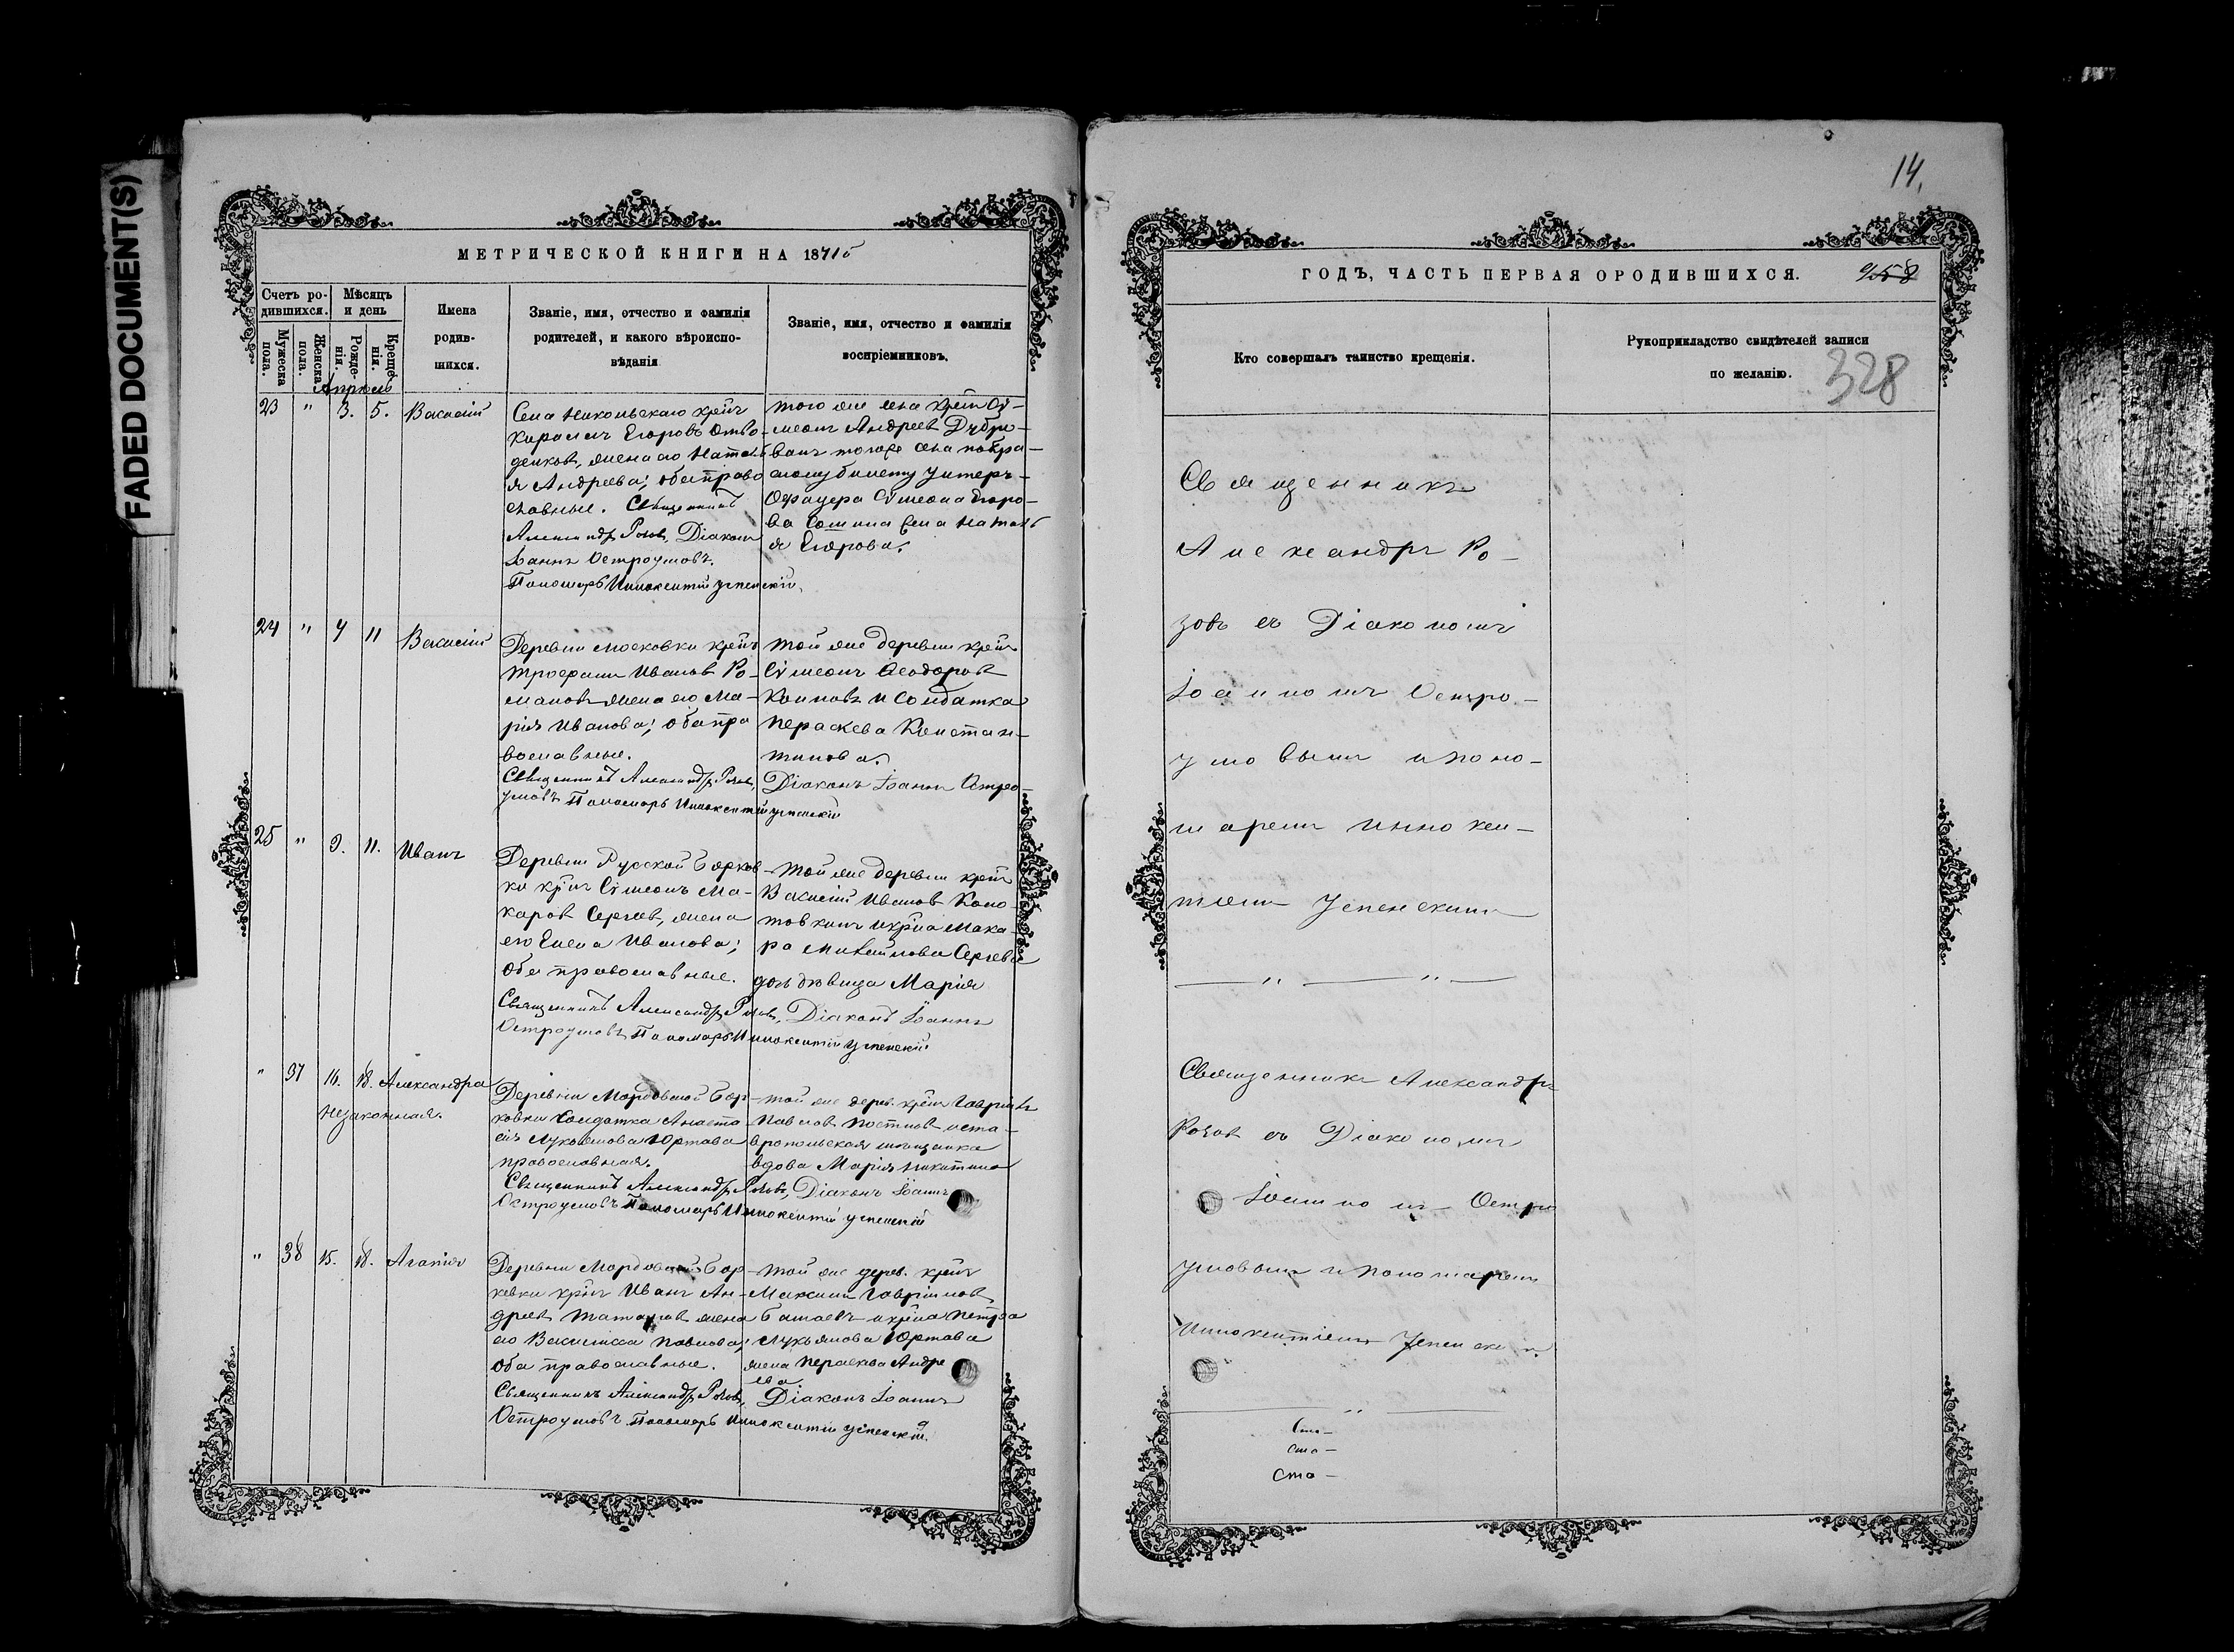 FADED DOCUMENT(S)
МЕТРИЧЕСКОЙ КНИГИ НА 1871й
Счетъ ро-
дившихся.
Мужеска
пола.
Женска
пола.
Мѣсяцъ
и день
Рожде-
нія.
Креще-
нія.
Имена
родив-
шихся.
Званіе, имя, отчество и фамилія
родителей, и какого вѣроиспо-
вѣданія
Званіе, имя, отчество и фамилія
воспріемниковъ.
Апрель
23 " 3. 5. Василій
Села Никольскаго крест.
Егоровъ
жена его Наталі-
я Андреева; оба право
славные. Священникъ
Александръ Розов, Діаконъ
Іоаннъ Остроумовъ.
Пономарь Иннокентій Успенскій.
того же села крест. Сѵ-
меонъ Андреев
тогоже села
билету Унтеръ-
Офицера Сѵмеона Егоро-
ва Наталі
я Егорова.
24 " 4 11 Василій
Деревни Московки крест.
Трофим Иванов Ро-
манов жена его Ма-
рія Иванова; оба пра
вославные.
Священникъ Александръ Розов, Діаконъ Іоаннъ Остро-
умовъ Пономарь Иннокентій Успенскій
той же деревни крест.
Сѵмеонъ Ѳеодоров
и солдатка
Параскева Констан-
тинова.
25 " 9. 11. Иванъ
Деревни Русской Борков-
ки крест. Сѵмеонъ Ма-
каров Сергеев, жена
его Елена Иванова;
оба православные.
Священникъ Александръ Розовъ, Діаконъ Іоаннъ
Остроумовъ Пономарь Иннокентій Успенскій
той же деревни крест.
Василій Иванов Коло-
товкин и крест. Мака-
ра Михайлова Сергеева
дочь дѣвица Марія
" 37 16. 18. Александра
Незаконная.
Деревни Мордовской Бор-
ковки Солдатка Анаста
сія Лукьянова Юртава
православная.
Священникъ Александръ Розовъ, Діаконъ Іоаннъ
Остроумовъ Пономарь Иннокентій Успенскій
той же дерев. крест. Гавріилъ
Павлов Постнов и ста-
вропольская мещанка
вдова Марія Никитина
" 38 15. 18. Агапія
Деревни Мордовской Бор-
ковки крест. Иванъ Ан-
дреев жена
его Василиса Павлова;
оба православные.
Священникъ Александръ Розовъ, Діаконъ Іоаннъ
Остроумовъ Пономарь Иннокентій Успенскій.
той же дерев. крест.
Максим Гавріилов
и крест. Петра
Лукьянова Юртава
жена Параскева Андре
ева
14.
ГОДЪ, ЧАСТЬ ПЕРВАЯ О РОДИВШИХСЯ.
Кто совершалъ таинство крещенія.
Рукоприкладство свидѣтелей записи
по желанію.
328
Священникъ
Александръ Ро-
зовъ съ Діакономъ
Іоанномъ Остро-
умовымъ и поно-
маремъ Иннокен-
тіемъ Успенскимъ
Священникъ Александръ
Розов съ Діакономъ
Іоанномъ Остро
умовымъ и пономаремъ
Иннокентіемъ Успенски м
Сто-
сто-
сто-